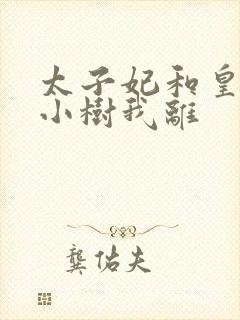 太子妃和皇
小樹我離
龔佑夫